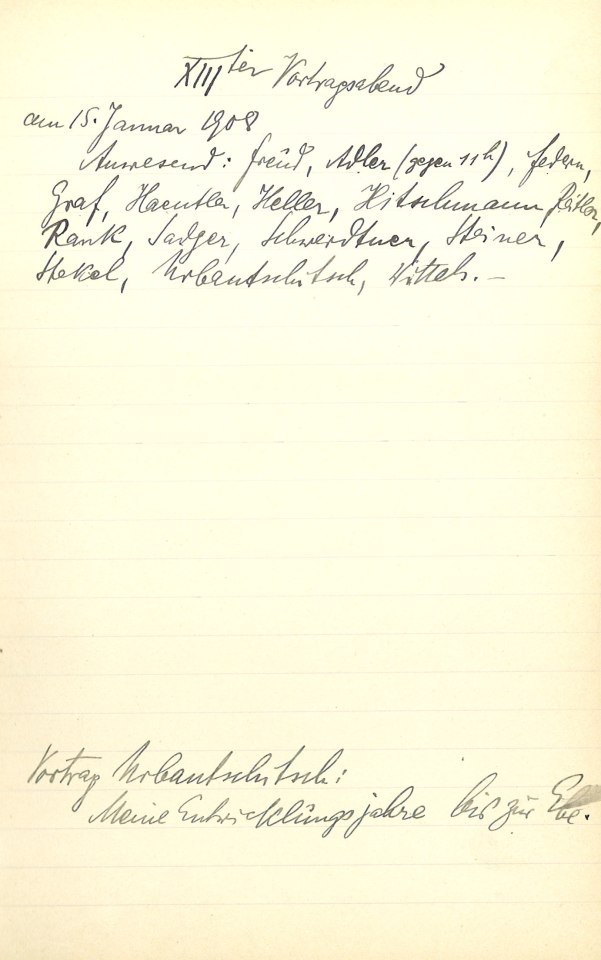 XIIIter Vortragsabend
am 15. Januar 1908
Anwesend: Freud, Adler (gegen 11h), Federn,
Graf, Haeutler, Heller, Hitschmann, Reitler,
Rank, Sadger, Schwerdtner, Steiner,
Stekel, Urbantschitsch, Wittels. —
Vortrag Urbantschitsch:
Meine Entwicklungsjahre bis zur Ehe.